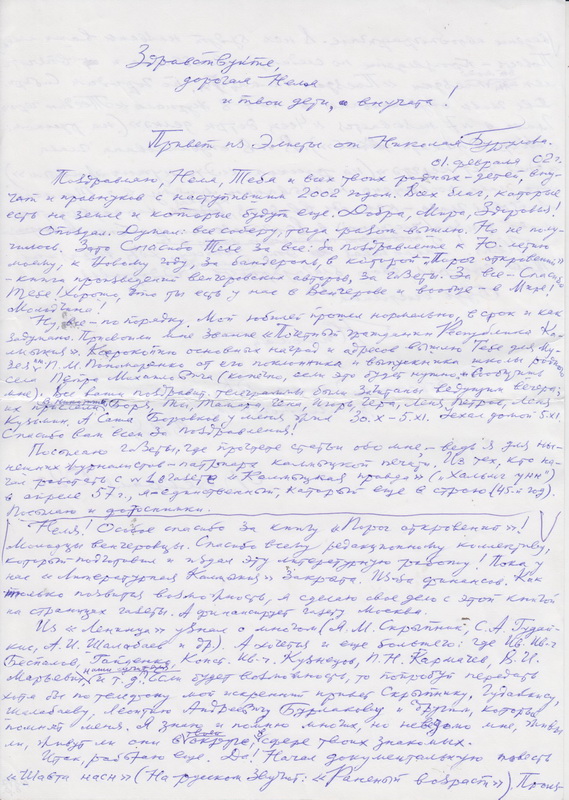 Здравствуйте,
дорогая Неля
и твои дети, и внучата!
Привет из Элисты от Николая Бурулова.
01. февраля 02 г.
Поздравляю, Неля, Тебя и всех твоих родных – детей, вну-
чат и правнуков с наступившим 2002 годом. Всех благ, которые
есть на земле и которые будут еще. Добра, Мира, Здоровья!
Опоздал. Думал: все соберу, тогда разом вышлю. Но не полу-
чилось. Зато Спасибо Тебе за все: за поздравления к 70-летию
моему, к Новому году, за бандероль, в которой – "Пирог откровений"
– книга произведений венгеровских авторов, за газеты. За все – Спасибо
Тебе! Хорошо, что ты есть у нас в Венгерове и вообще – в Мире!
Молодчина!
Ну, все – по порядку. Мой юбилей прошел нормально, в срок и как
задумано. Присвоили мне звание "Почетный гражданин Республики Кал-
мыкия". Ксерокопии основных наград и адресов вышлю Тебе для му-
зея П.М. Пономаренко от его поклонника и выпускника школы
села Петра Михайловича (конечно, если это будет нужно. Сообщи
мне). Все ваши поздравит. телеграммы были зачитаны ведущим вечера:
их прислали: Ты, Тамара Чанг, Игорь Чере, Леня Петров, Леня
Кузьмин. А Саша Боровков у меня был 30.X – 5.XI. Уехал домой 5.XI
Спасибо вам всем за поздравления!
Посылаю газеты, где прочтете статьи обо мне, – ведь я для ны-
нешних журналистов – патриарх калмыцкой печати. Из тех, кто на-
чал работать с газете "Калмыцкая правда" ("Хальмг үнн")
в апреле 57 г., я – единственный, который еще в строю (45-й год).
Посылаю и фотоснимки.
Неля! Особое спасибо за книгу "Пирог откровений"!
Молодцы венгеровцы. Спасибо всему редакционному коллективу,
который подготовил и издал эту литературную работу! Пока у
нас "Литературная Калмыкия" закрыта. Из-за финансов. Как
только появится возможность, я сделаю свое дело с этой книгой
на страницах газеты. А финансирует газету Москва.
Из "Ленинца" узнал о многом (А.М. Скрыпник, С.А. Гудей-
кис, А.И. Шалабаев и др.). А хочется и еще большего: где Ив. Ив-ч
Беспалов, Гайденко, Конст. Ив-ч. Кузнецов, П.Н. Карначев, В.И.
Марьевич и т.д. Если будет возможность, то попробуй передать
хотя бы по телефону мой искренний привет Скрыпнику, Гудейкису,
Шалабаеву, Леонтию Андреевичу Бурлакову и другим, которые
помнят меня. Я знаю и помню многих, но неведомо мне, живы
ли, живут ли они в округе, в сфере твоих знакомых.
Итак, работаю еще. Да! Начал документальную повесть
"Шавта насн" (На русском звучит: "Раненый возраст").